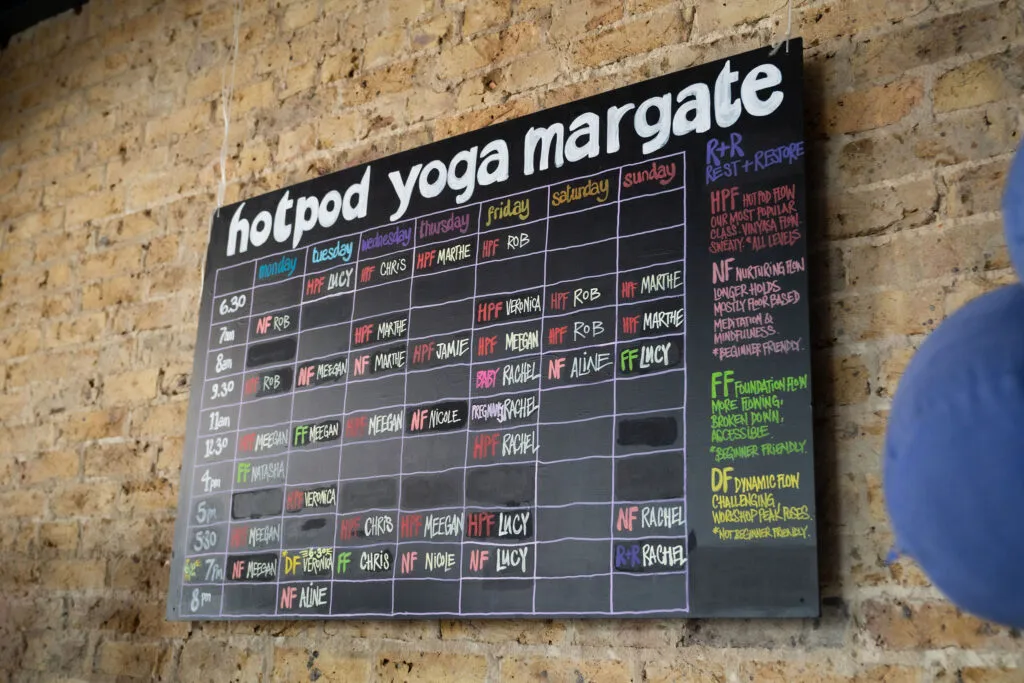 hotpod yoga margate
monday tuesday wednesday thursday friday saturday sunday
6.30 HPF LUCY HPF CHRIS HPF MARTHE HPF ROB
7am NF ROB
8am HPF MARTHE HPF VERONICA HPF ROB HPF MARTHE
9.30 HPF ROB NF MEEGAN NF MARTHE HPF JAMIE HPF MEEGAN HPF ROB HPF MARTHE
11am BABY RACHEL NF ALINE FF LUCY
12.30 HPF MEEGAN FF MEEGAN HPF MEEGAN NF NICOLE PREGNANCY RACHEL
4pm FF NATASHA HPF RACHEL
5pm HPF VERONICA
5.30 HPF MEEGAN HPF CHRIS HPF MEEGAN HPF LUCY NF RACHEL
7pm NF MEEGAN DF 6.30 VERONICA FF CHRIS NF NICOLE NF LUCY R+R RACHEL
8pm NF ALINE
R+R
REST + RESTORE
HPF HOTPOD FLOW
OUR MOST POPULAR
CLASS. VINYASA FLOW.
SWEATY. *ALL LEVELS
NF NURTURING FLOW
LONGER HOLDS
MOSTLY FLOOR BASED
MEDITATION &
MINDFULNESS.
*BEGINNER FRIENDLY.
FF FOUNDATION FLOW
MORE FLOWING,
BROKEN DOWN,
ACCESSIBLE.
*BEGINNER FRIENDLY.
DF DYNAMIC FLOW
CHALLENGING,
WORKSHOP PEAK POSES.
*NOT BEGINNER FRIENDLY.